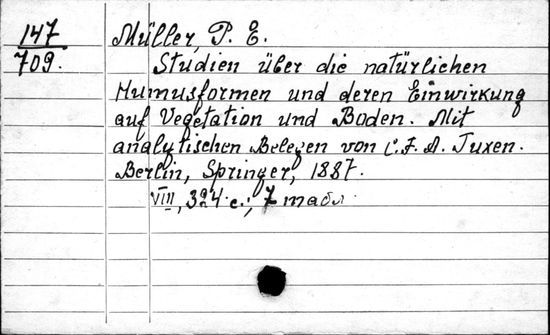 147 Müller, P. E.
709. Studien über die natürlichen
Humusformen und deren Einwirkung
auf Vegetation und Boden. Mit
analytischen Belegen von C. F. A. Tuxen.
Berlin, Springer, 1887.
VIII, 324 с.; 7 табл.